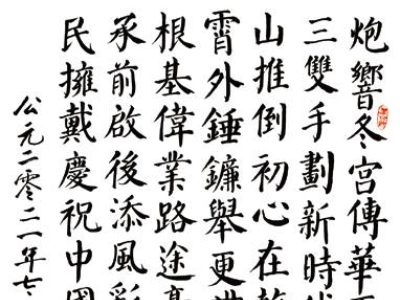 炮響冬宮傳華
三雙手劃新時
山推倒初心在
霄外錘鐮舉更
根基偉業路途
承前啟後添風彩
民擁戴慶祝中國
公元二零二一年七